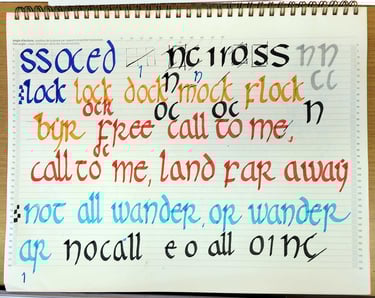 ssoced nc iross nn
1 n n cc
lock lock dock mock flock
ock oc oc n
free call to me,
oc
call to me, land far away
not all wander, or wander
ar no call e o all o i nc
1